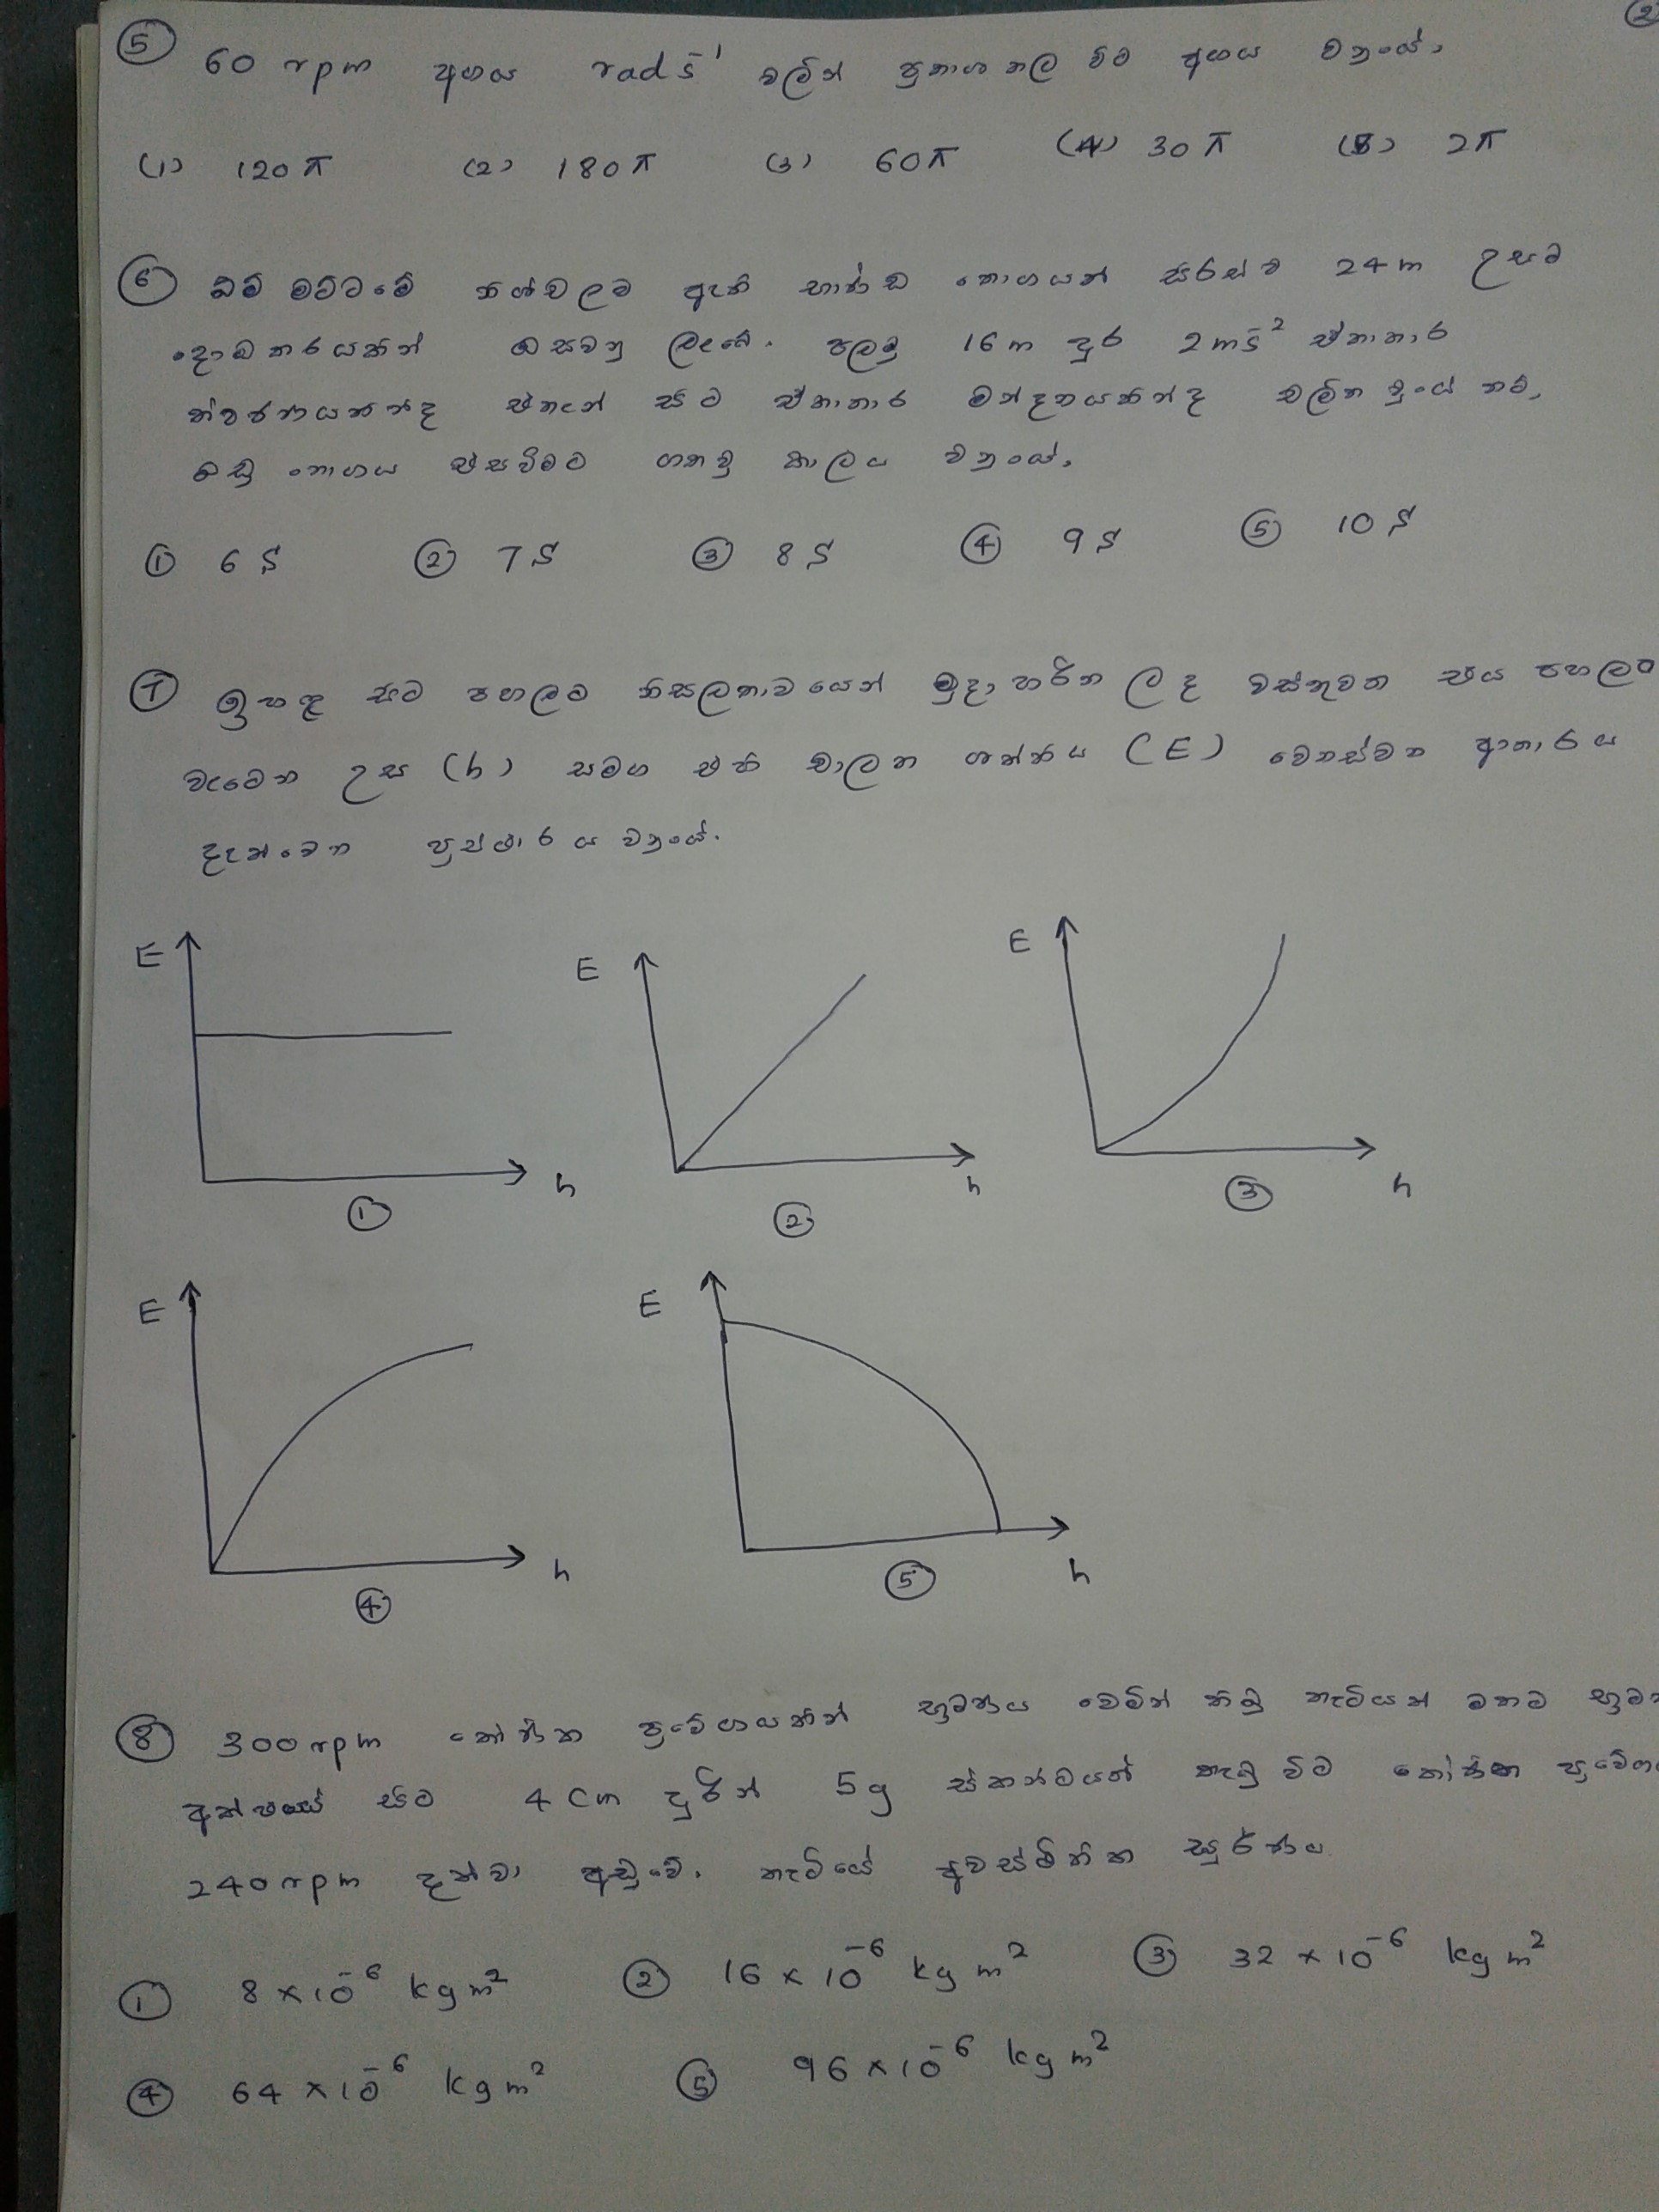 2
⑤ 60 rpm අගය rad s⁻¹ වලින් ප්‍රකාශ කල විට අගය වනුයේ,
(1) 120π (2) 180π (3) 60π (4) 30π (5) 2π
⑥ බිම් මට්ටමේ නිශ්චලව ඇති භාණ්ඩ තොගයක් සිරස්ව 24 m උසට
දොඹකරයකින් ඔසවනු ලැබේ. පලමු 16 m දුර 2 ms⁻² ඒකාකාර
ත්වරණයකින්ද එතැන් සිට ඒකාකාර මන්දනයකින්ද චලිත වුයේ නම්,
බඩු තොගය එසවීමට ගතවු කාලය වනුයේ,
① 6 s ② 7 s ③ 8 s ④ 9 s ⑤ 10 s
⑦ ඉහළ සිට පහලට නිසලතාවයෙන් මුදා හරින ලද වස්තුවක එය පහලට
වැටෙන උස (h) සමග එහි චාලක ශක්තිය (E) වෙනස්වන ආකාරය
දැක්වෙන ප්‍රස්ථාරය වනුයේ.
E h ①
E h ②
E h ③
E h ④
E h ⑤
⑧ 300 rpm කෝණික ප්‍රවේගයකින් භ්‍රමණය වෙමින් තිබු තැටියක් මතට
අක්ෂයේ සිට 4 cm දුරින් 5g ස්කන්ධයක් තැබු විට කෝණික
240 rpm දක්වා අඩුවේ. තැටියේ අවස්ථිති සුර්ණය
① 8 × 10⁻⁶ kg m² ② 16 × 10⁻⁶ kg m² ③ 32 × 10⁻⁶ kg m²
④ 64 × 10⁻⁶ kg m² ⑤ 96 × 10⁻⁶ kg m²